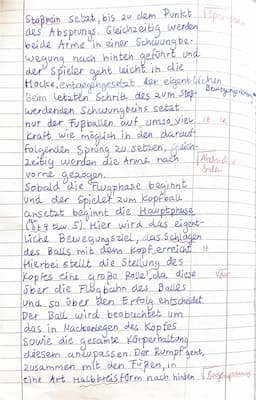 Stoßbein setzt, bis zu dem Punkt
des Absprungs. Gleichzeitig werden
beide Arme in einer Schwungbe-
wegung nach hinten geführt und
der Spieler geht leicht in die
Hocke, entgegengesetzt der eigentlichen
Bewegungsrichtung
Beim letzten Schritt des zum Stoß-
werdenden Schwungbeins setzt
nur der Fußballen auf, um so viel
Kraft wie möglich in den darauf-
folgenden Sprung zu setzen, Gleich-
zeitig werden die Arme nach
vorne gezogen.
Sobald die Flugphase beginnt
und der Spieler zum Kopfball
ansetzt beginnt die Hauptphase
Hier wird das eigent-
liche Bewegungsziel, das Schlagen
des Balls mit dem Kopf, erreicht
Hierbei stellt die Stellung des
Kopfes eine große Rolle, da diese
über die Flugbahn des Balles
und so über den Erfolg entscheidet.
Der Ball wird beobachtet um
das in Nackenlegen des Kopfes
sowie die gesamte Körperhaltung
diesem anzupassen. Der Rumpf geht,
zusammen mit den Füßen, in
eine Art Halbkreisform nach hinten